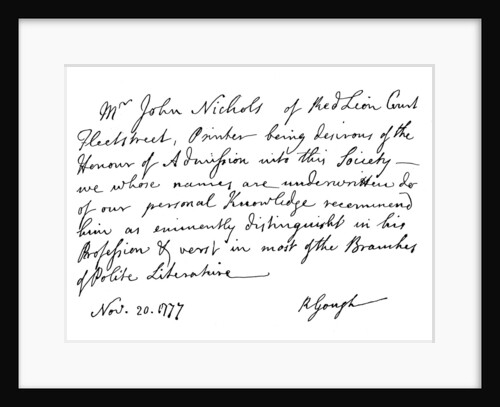 Mr John Nichols of Red Lion Court
Fleetstreet, Printer being desirous of the
Honour of Admission into this Society —
we whose names are underwritten do
of our personal Knowledge recommend
him as eminently distinguisht in his
Profession & verst in most of the Branches
of Polite Literature
Nov. 20. 1777 RGough